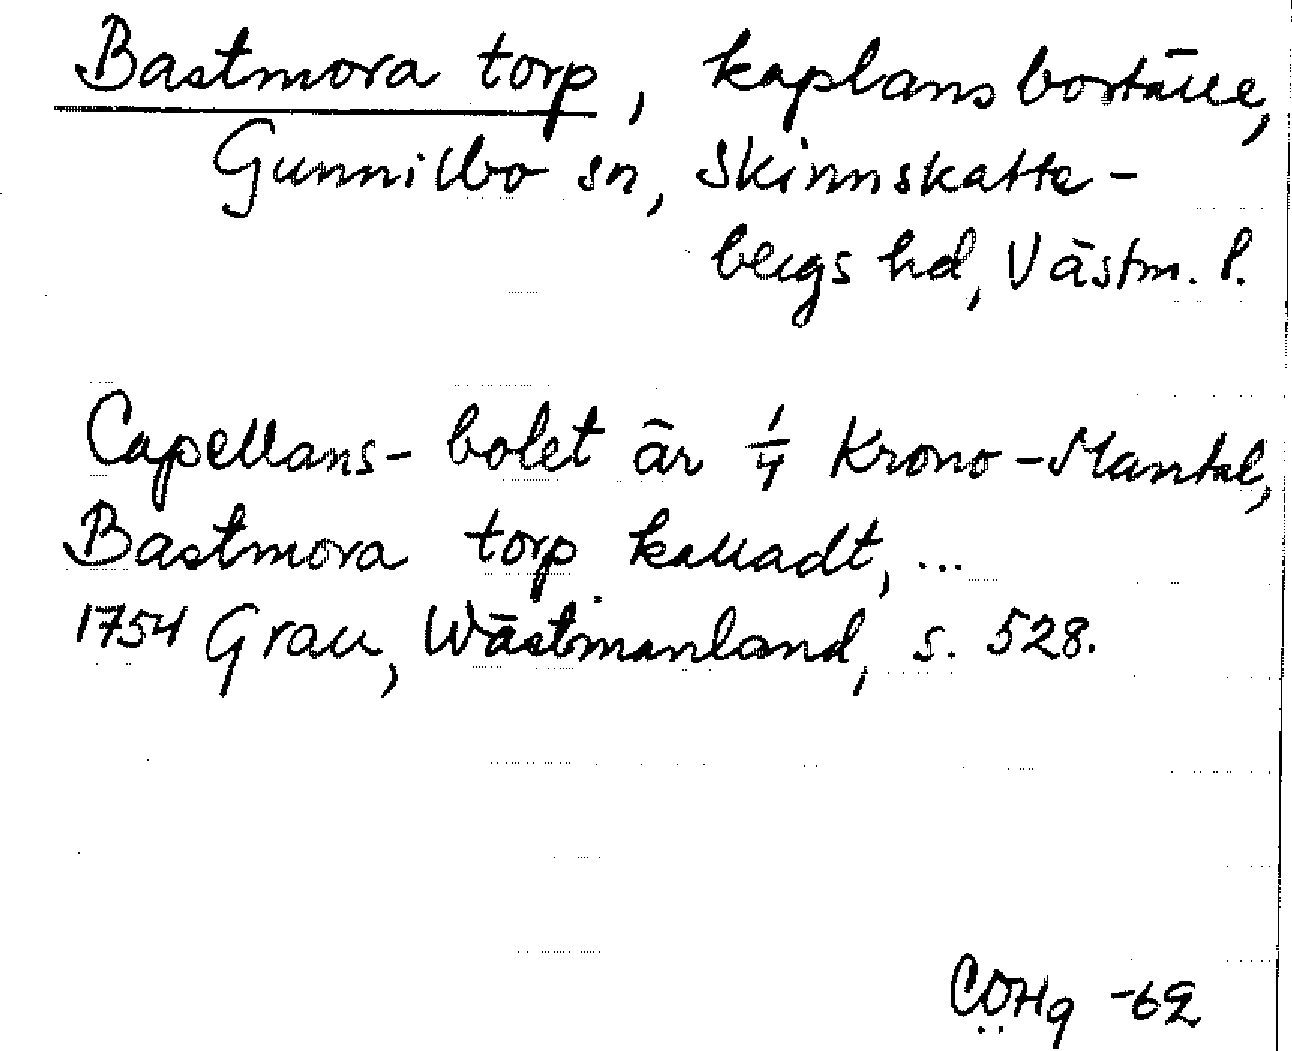 Bastmora torp, kaplansboställe,
Gunnilbo sn, Skinnskatte-
bergs hd, Västm. l.
Capellans-bolet är 1/4 Krono-Mantal,
Bastmora torp kalladt, ...
1754 Grau, Wästmanland, s. 528.
-62